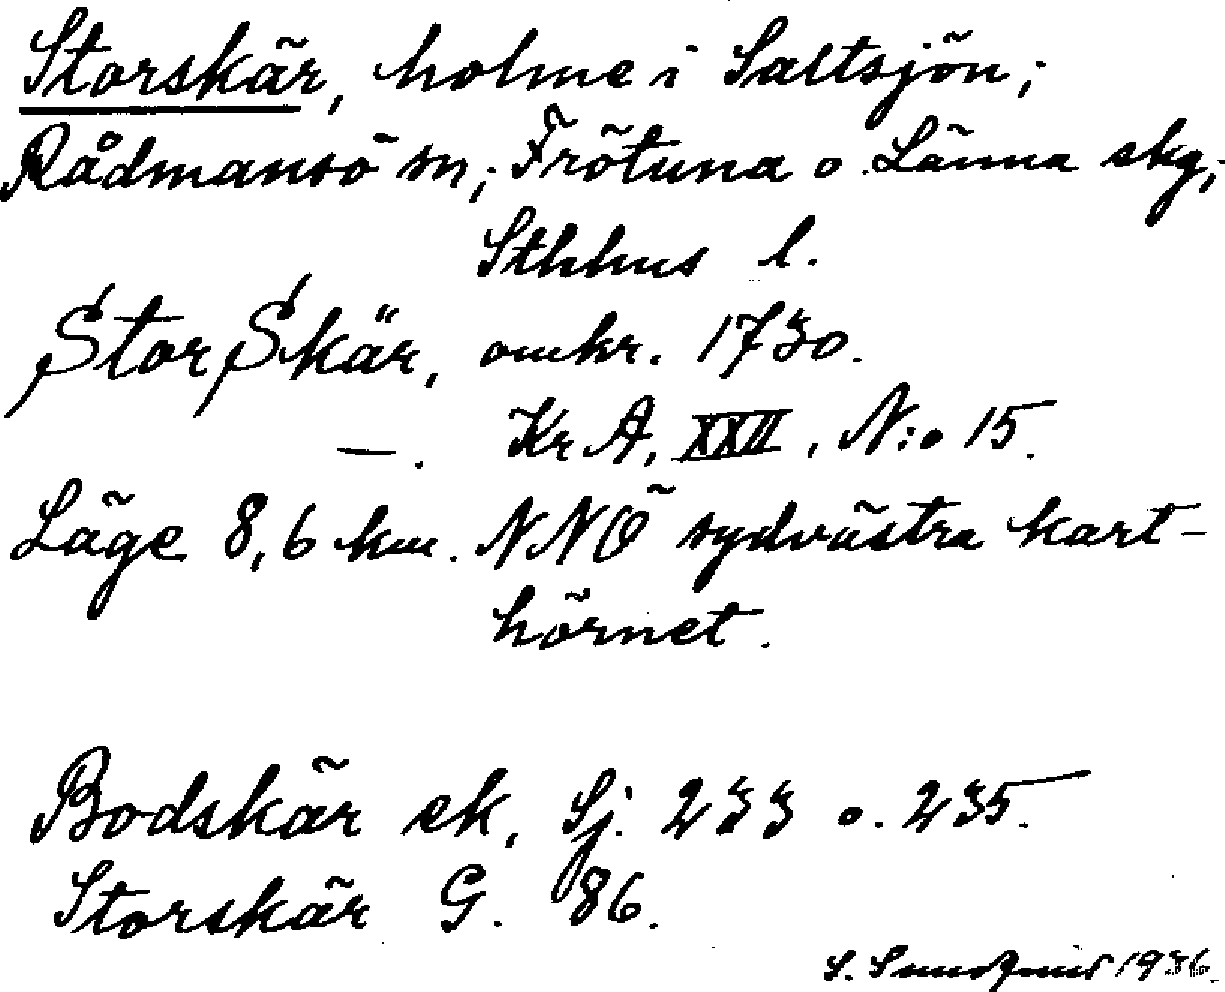 Storskär, holme i Saltsjön;
Rådmansö sn; Frötuna o. Länna skg;
Sthhus l.
Stor Skär, omkr. 1730.
—. Kr A, XXII, N:o 15.
Läge 8,6 km. NNÖ sydvästra kart-
hörnet.
Bodskär ek, Sj. 233 o. 235.
Storskär G. 86.
S. 1936.